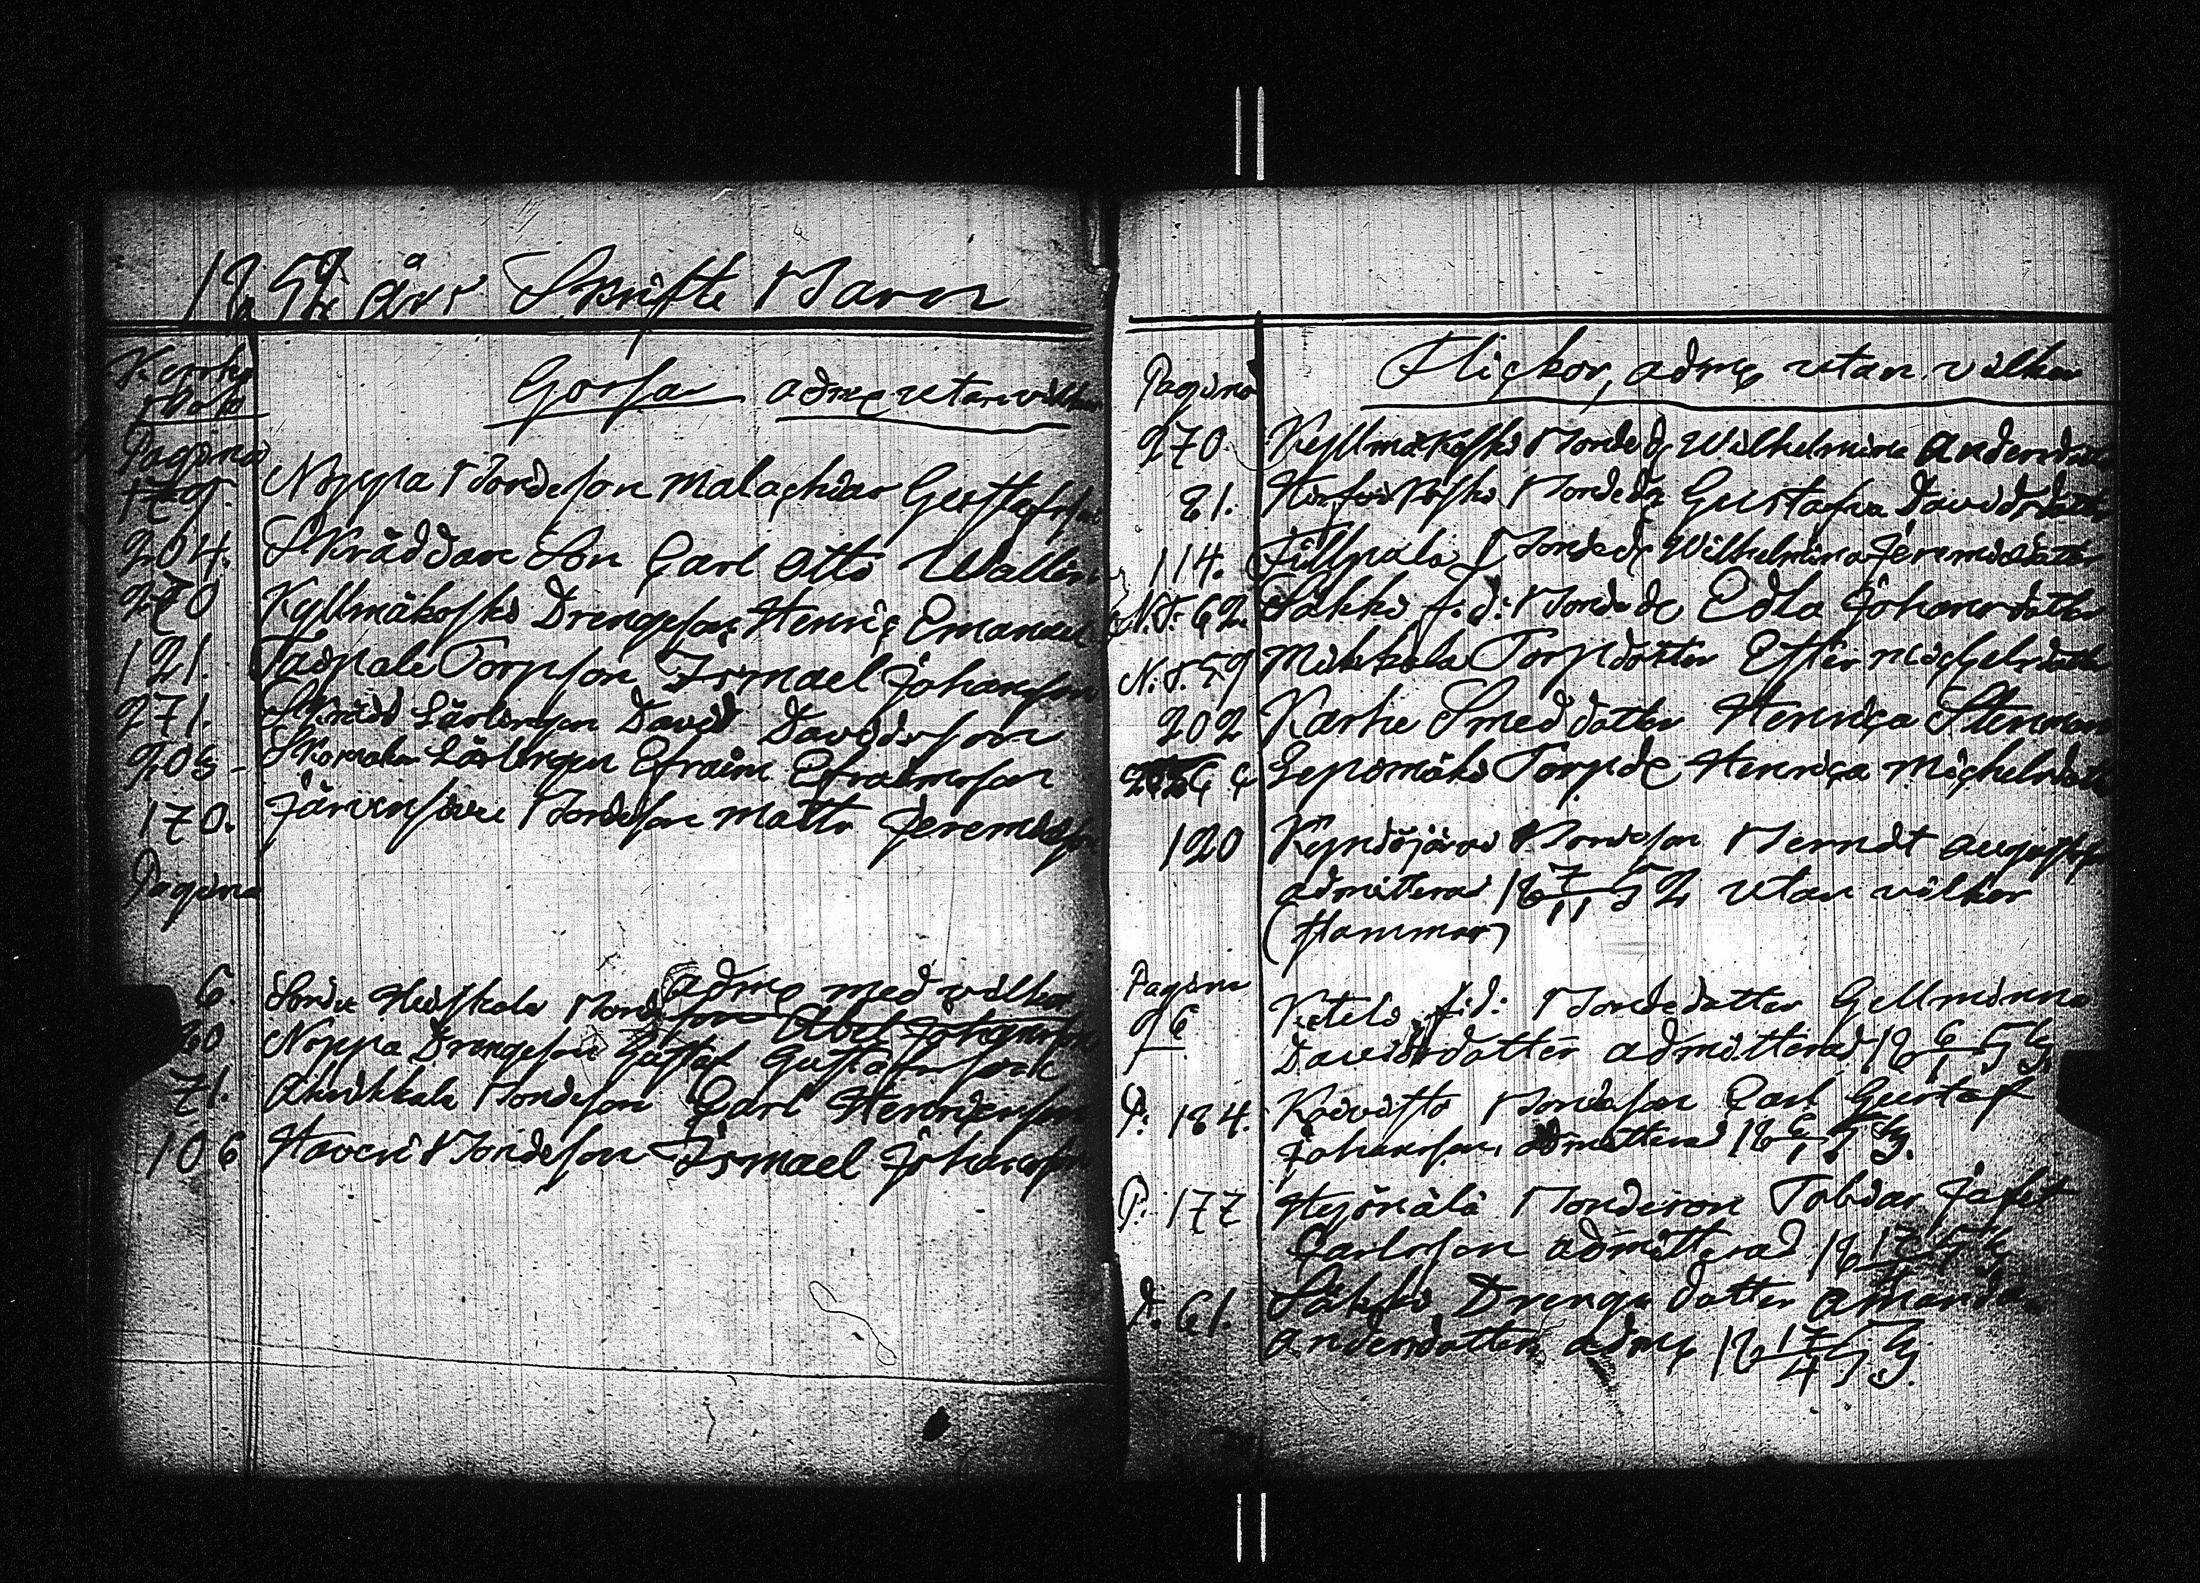 1852 års Skrifte Barn
Kyrko
bok
Gossar adm: utan vilkor
Pagina
179. Noppa Bondeson Malachias Gustafsson
204. Skräddare Son Carl Otto Wallin
270 Kyllmäkoski Drengeson Henric Emanuel
121. Torpson Ismael Johansson
271. Skrädd Lärlingen David Davidsson
205 - Skomak Lärlingen Efraim Efraimsson
170. Järvensivu Bondeson Matts Jeremiasson
Pagina
adm: med vilkor
6. Bondeson Abel Johansson
20 Noppa Drengeson Gustaf Gustafsson
71. Bondeson Carl Henricsson
106 Haveri Bondeson Ismael Johansson
Pagina
Flickor, adm: utan vilkor
270. Kyllmäkoski Bonded: Wilhelmina Andersdotter
81. Bonded: Gustafva Davidsdotter
114. Bonded: Wilhelmina Jeremiædotter
N.S. 62 Sakki f.d. Bonded: Edla Johansdotter
N.S. 59 Mikkola Torpdotter Ester Michelsdotter
202 Karhe Smed dotter Henrica Stenman
Lepomäki Torpd: Henrica Michelsdotter
120 Bondeson Berndt August
admitterad 18 7/11 52 utan vilkor
(Hammar)
Pagina
96 Ketola f.d: Bondedotter Gellminna
Davidsdotter admitterad 18 6/1 53
P. 184. Koivisto Bondeson Carl Gustaf
Johansson admitterad 18 6/1 53.
P. 177 Bondeson Tobias Jafet
Carlsson admitterad 18 17/4 53
P. 61. Säkki Drenge dotter Amanda
Andersdotter adm: 18 17/4 53.